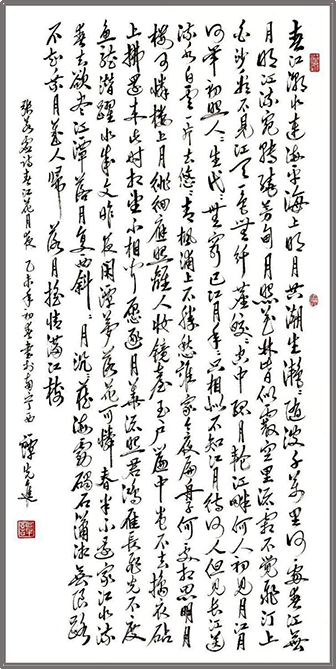 春江潮水連海平海上明月共潮生灩灩隨波千万里何處春江無
月明江流宛轉繞芳甸月照花林皆似霰空里流霜不覺飛汀上
白沙看不見江天一色無纤塵皎皎空中孤月輪江畔何人初見月江月
何年初照人人生代代無窮已江月年年只相似不知江月待何人但見長江送
流水白雲一片去悠悠青楓浦上不勝愁誰家今夜扁舟子何處相思明月
樓可憐樓上月徘徊應照離人妝鏡臺玉户簾中卷不去擣衣砧
上拂還來此時相望不相聞願逐月華流照君鴻雁長飛光不度
魚龍潛躍水成文昨夜閑潭夢落花可憐春半不還家江水流
春去欲盡江潭落月復西斜斜月沉沉藏海霧碣石瀟湘無限路
不知乘月幾人歸 落月搖情滿江樹
張若虚詩春江花月夜 乙未年初夏書於南寧西 譚先進